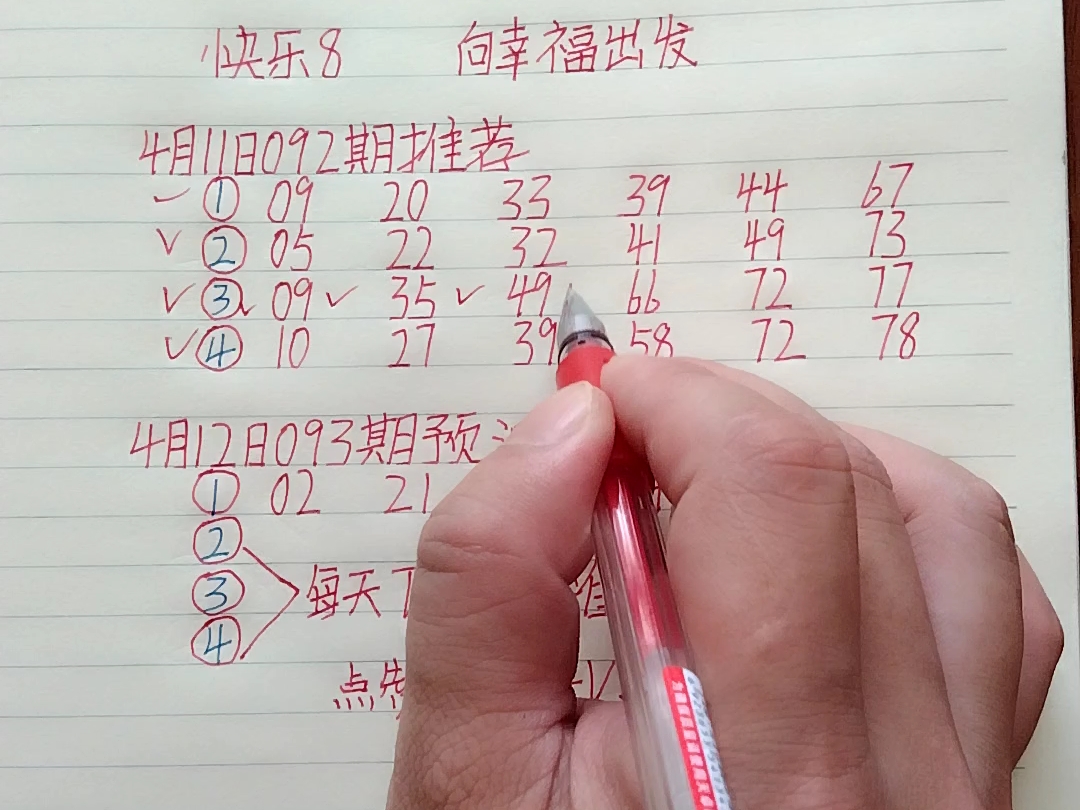 快乐8 向幸福出发
4月11日092期推荐
① 09 20 33 39 44 67
② 05 22 32 41 49 73
③ 09 35 49 66 72 77
④ 10 27 39 58 72 78
4月12日093期预
① 02 21
②
③ 每天
④
点